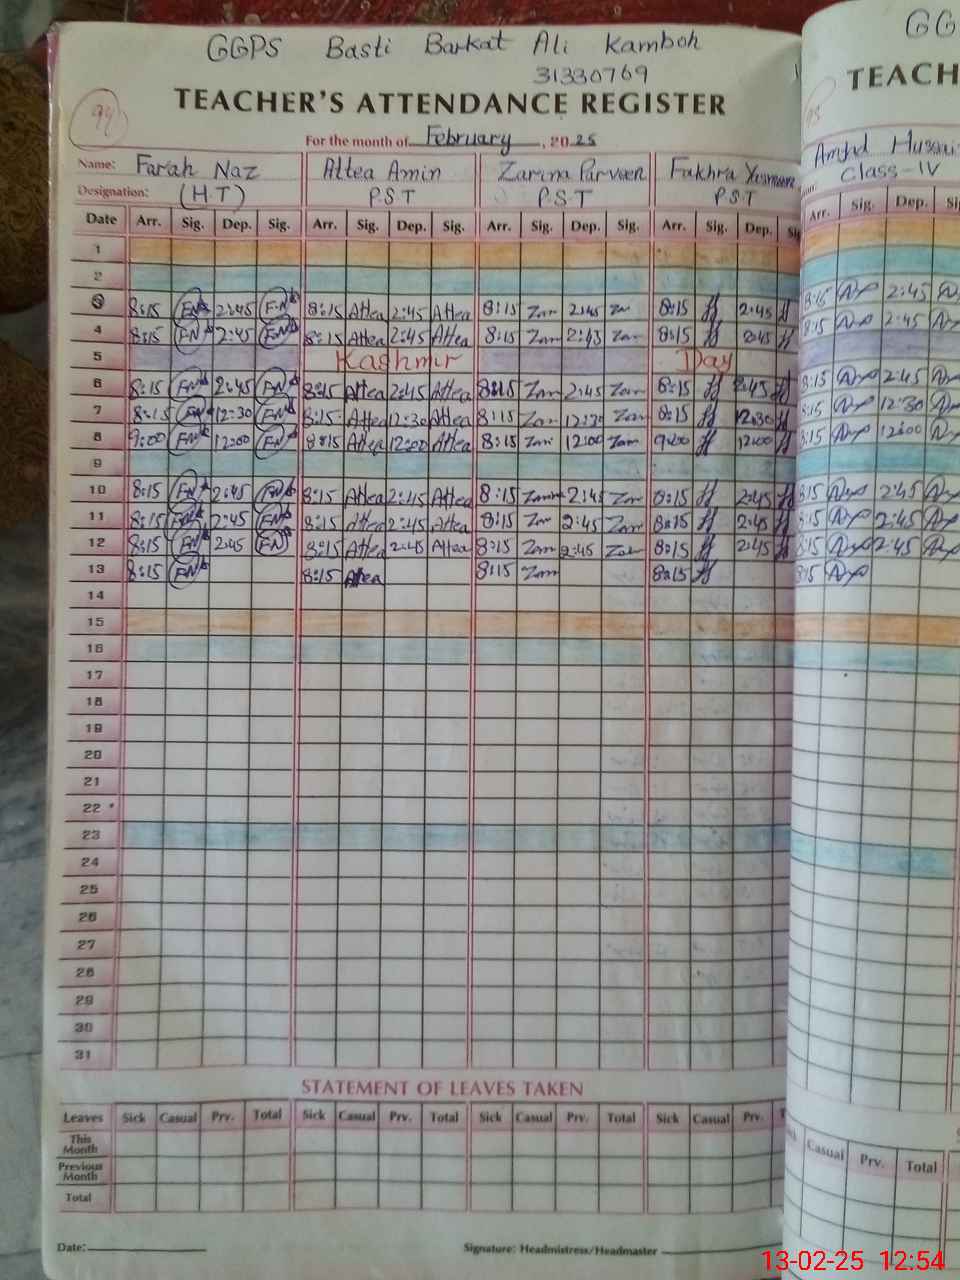 GGPS Basti Barkat Ali Kamboh
31330769
TEACHER'S ATTENDANCE REGISTER
94
For the month of February, 2025
Name: Farah Naz Attea Amin Zarina Parveen Fakhra Yasmeen
Designation: (H.T) P.S.T P.S.T P.S.T
Date Arr. Sig. Dep. Sig. Arr. Sig. Dep. Sig. Arr. Sig. Dep. Sig. Arr. Sig. Dep. Sig
1
2
3 8:15 FN 2:45 FN 8:15 Attea 2:45 Attea 8:15 Zam 2:45 8:15 2:45
4 8:15 FN 2:45 FN 8:15 Attea 2:45 Attea 8:15 Zam 2:45 Zam 8:15 2:45
5 Kashmir Day
6 8:15 FN 2:45 FN 8:15 Attea 2:45 Attea 8:15 Zam 2:45 Zam 8:15 2:45
7 8:15 FN 12:30 FN 8:15 Attea 12:30 Attea 8:15 Zam 12:30 Zam 8:15 12:30
8 9:00 FN 12:00 FN 8:15 Attea 12:00 Attea 8:15 Zam 12:00 Zam 9:00 12:00
9
10 8:15 FN 2:45 FN 8:15 Attea 2:45 Attea 8:15 Zam 2:45 Zam 8:15 2:45
11 8:15 FN 2:45 FN 8:15 Attea 2:45 Attea 8:15 Zam 2:45 Zam 8:15 2:45
12 8:15 FN 2:45 FN 8:15 Attea 2:45 Attea 8:15 Zam 2:45 Zam 8:15 2:45
13 8:15 FN 8:15 Attea 8:15 Zam 8:15
14
15
16
17
18
19
20
21
22
23
24
25
26
27
28
29
30
31
STATEMENT OF LEAVES TAKEN
Leaves Sick Casual Prv. Total Sick Casual Prv. Total Sick Casual Prv. Total Sick Casual Prv.
This Month
Previous Month
Total
Date: Signature: Headmistress/Headmaster
GG
TEACH
95
Amjad Hussai
Class-IV
Arr. Sig. Dep. Si
8:15 2:45
8:15 2:45
8:15 2:45
8:15 12:30
8:15 12:00
8:15 2:45
8:15 2:45
8:15 2:45
8:15
Casual Prv. Total
13-02-25 12:54